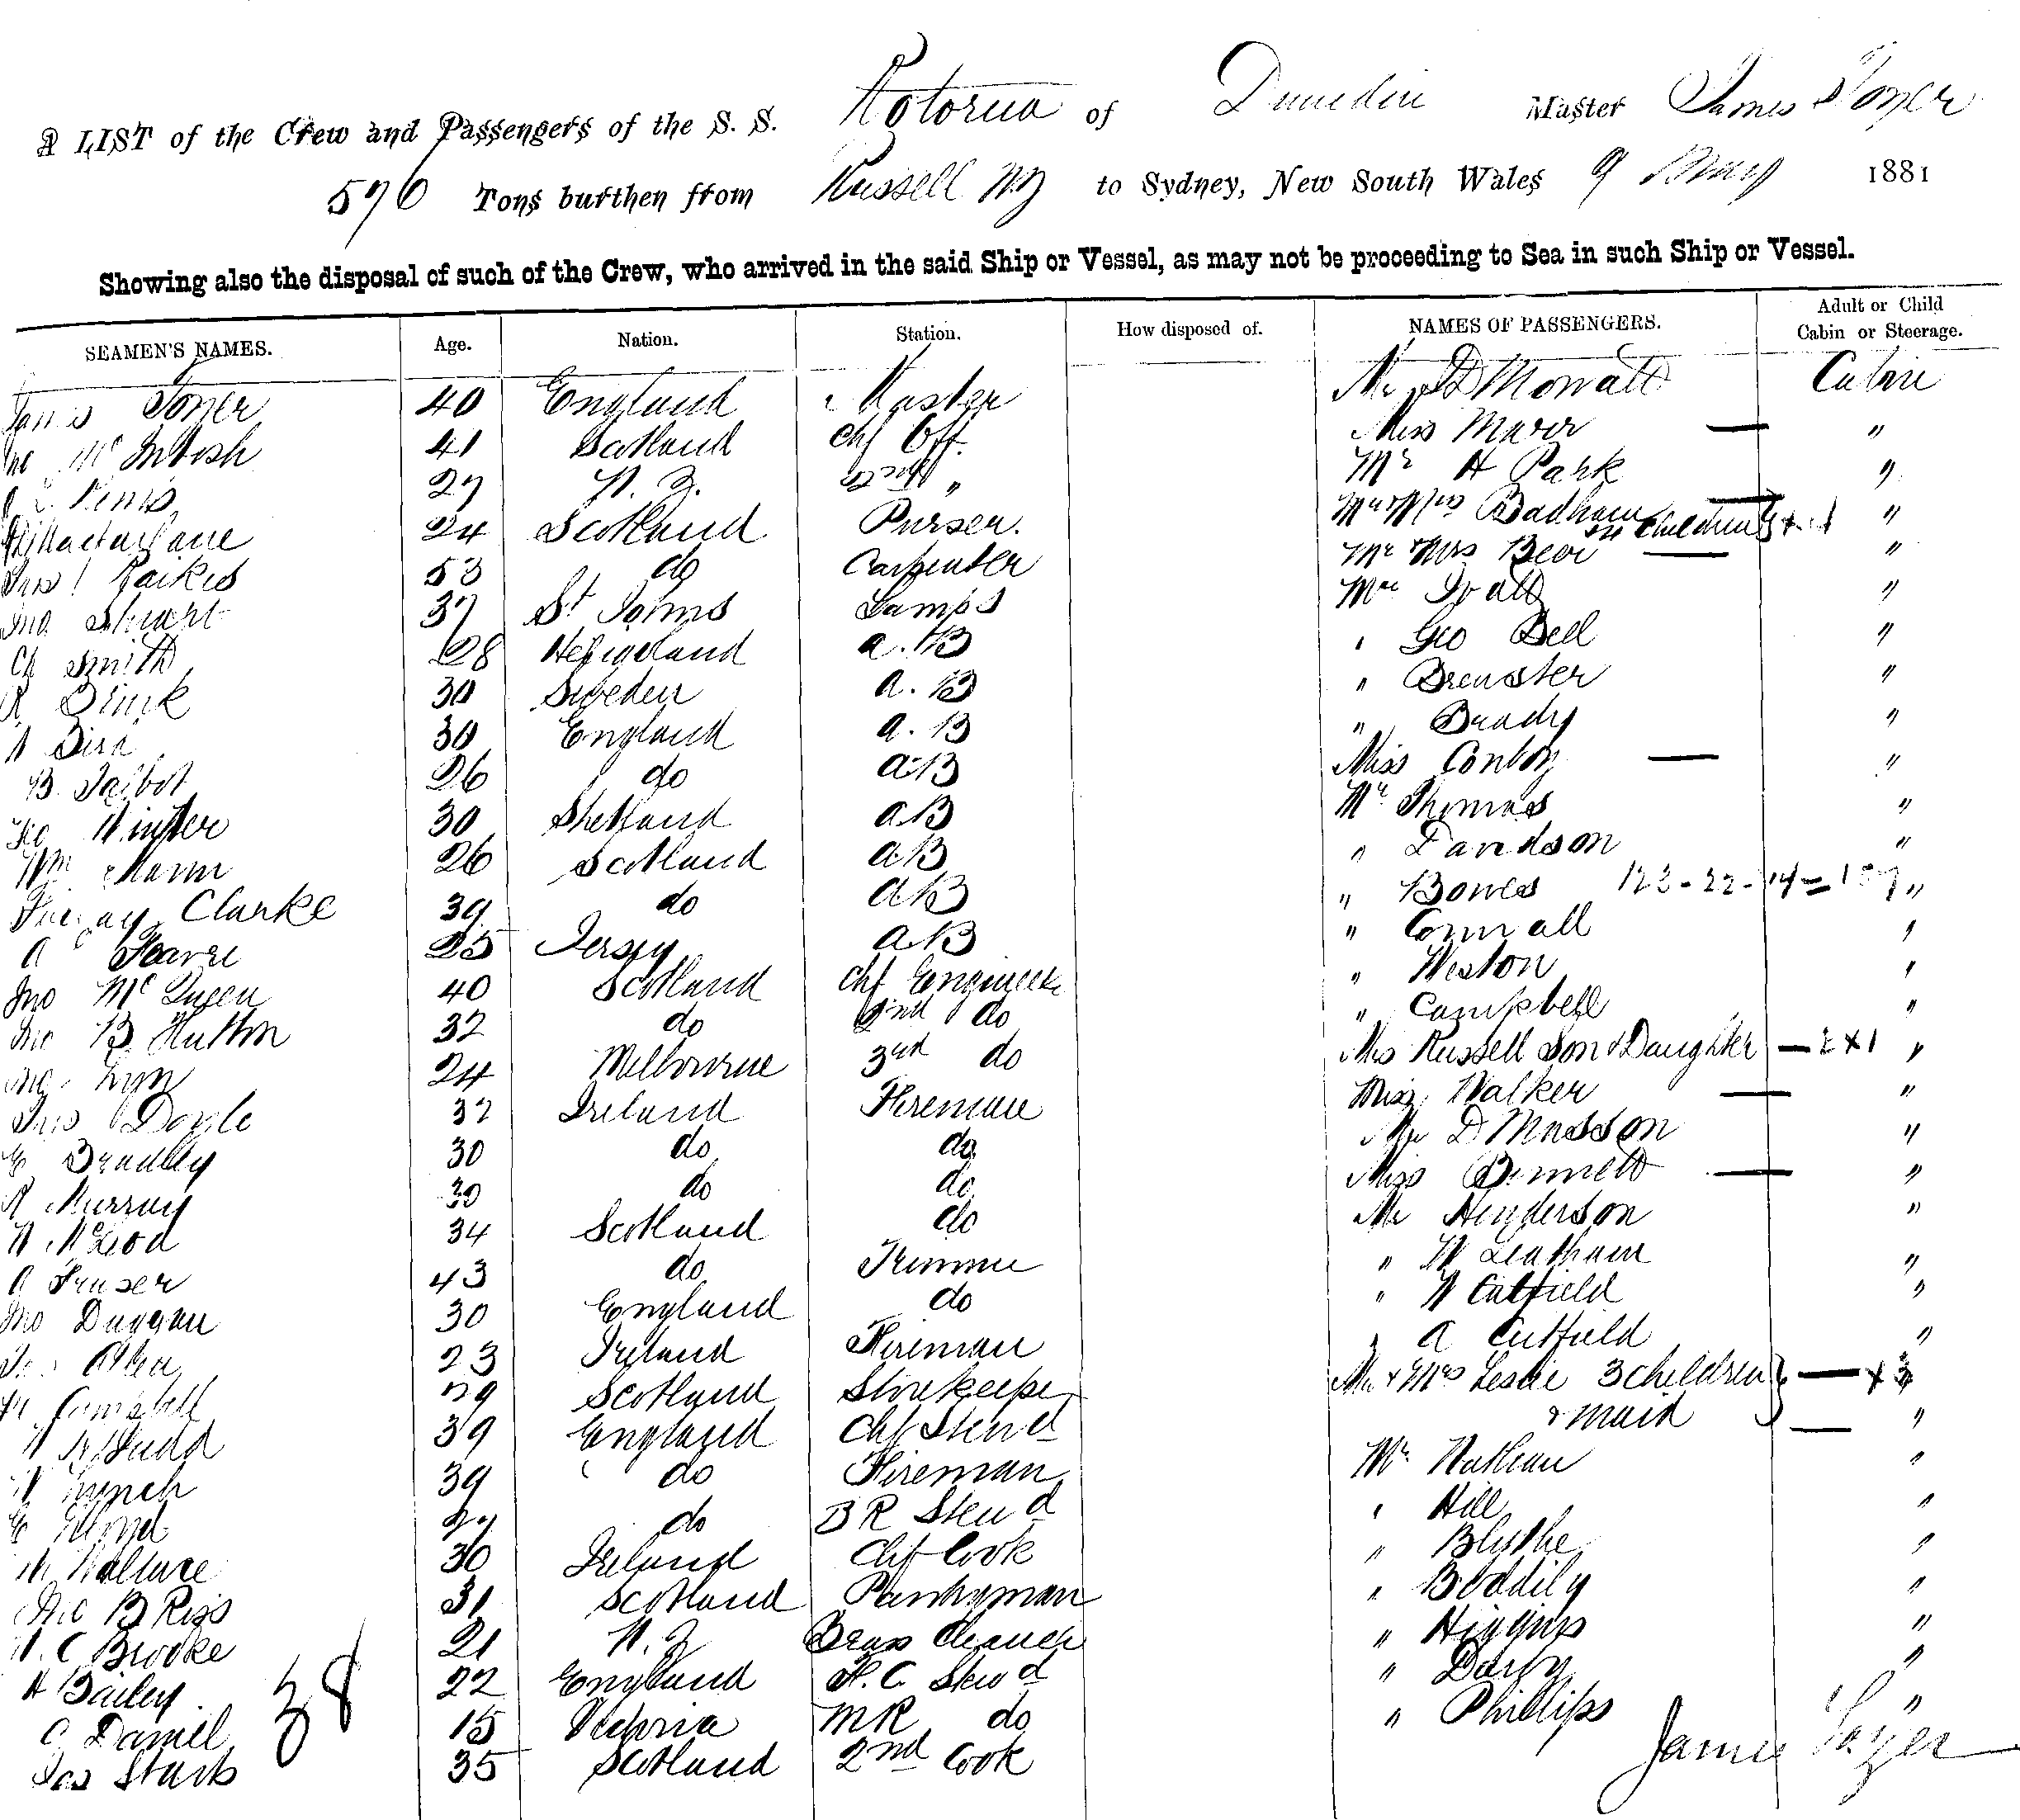 A LIST of the Crew and Passengers of the S. S. Rotorua of Dunedin Master James
576 Tons burthen from Russell NZ to Sydney, New South Wales 9 May 1881
Showing also the disposal of such of the Crew, who arrived in the said Ship or Vessel, as may not be proceeding to Sea in such Ship or Vessel.
SEAMEN'S NAMES. Age. Nation. Station. How disposed of. NAMES OF PASSENGERS. Adult or Child Cabin or Steerage.
40 England Master Mr D Mowatt Cabin
McIntosh 41 Scotland Chf Off. Miss Marr — "
27 N. Z. 2nd " Mr H Park "
Macfarlane 24 Scotland Purser. Mr & Mrs Badham children "
53 do Carpenter Mr & Mrs — "
Jno Stuart 37 St Johns Lamps Mr "
Ch Smith 28 Heligoland A.B " Geo Bell "
30 Sweden A.B " Brewster "
30 England A.B " Brady "
B. Talbot 26 do AB Miss Conboy — "
Geo Winter 30 Shetland AB Mr Thomas "
Wm Mann 26 Scotland AB " Davidson "
Clarke 39 do AB " Bowes 123-22-14=159 "
A 25 Jersey AB " Connall "
Jno McQueen 40 Scotland Chf Engineer " Weston "
Jno B Hutton 32 do 2nd do " Campbell "
24 Melbourne 3rd do Mrs Russell Son & Daughter — 2 x 1 "
Jas Doyle 32 Ireland Fireman Miss Walker — "
Bradley 30 do do Mr D Musson "
R Murray 30 do do Miss Bennett — "
N McLeod 34 Scotland do Mr Henderson "
A Fraser 43 do Trimmer " W Leatham "
Jno Duggan 30 England do " W Cutfield "
23 Ireland Fireman " A Cutfield "
Campbell 29 Scotland Storekeeper Mr & Mrs Leslie 3 children — x 3
Judd 39 England Chf Stewd & maid — "
39 do Fireman Mr Nathan "
27 do B R Stewd " Hill "
Wallace 30 Ireland Chf Cook " Blythe "
Jno B Ross 31 Scotland Pantryman " Boddily "
W. C Brooke 21 N. Z Brass Cleaner " Higgins "
H Bailey 22 England F. C. Stewd " Darby "
C Daniel 38 15 Victoria M R do " Phillips "
Jas Stark 35 Scotland 2nd Cook James